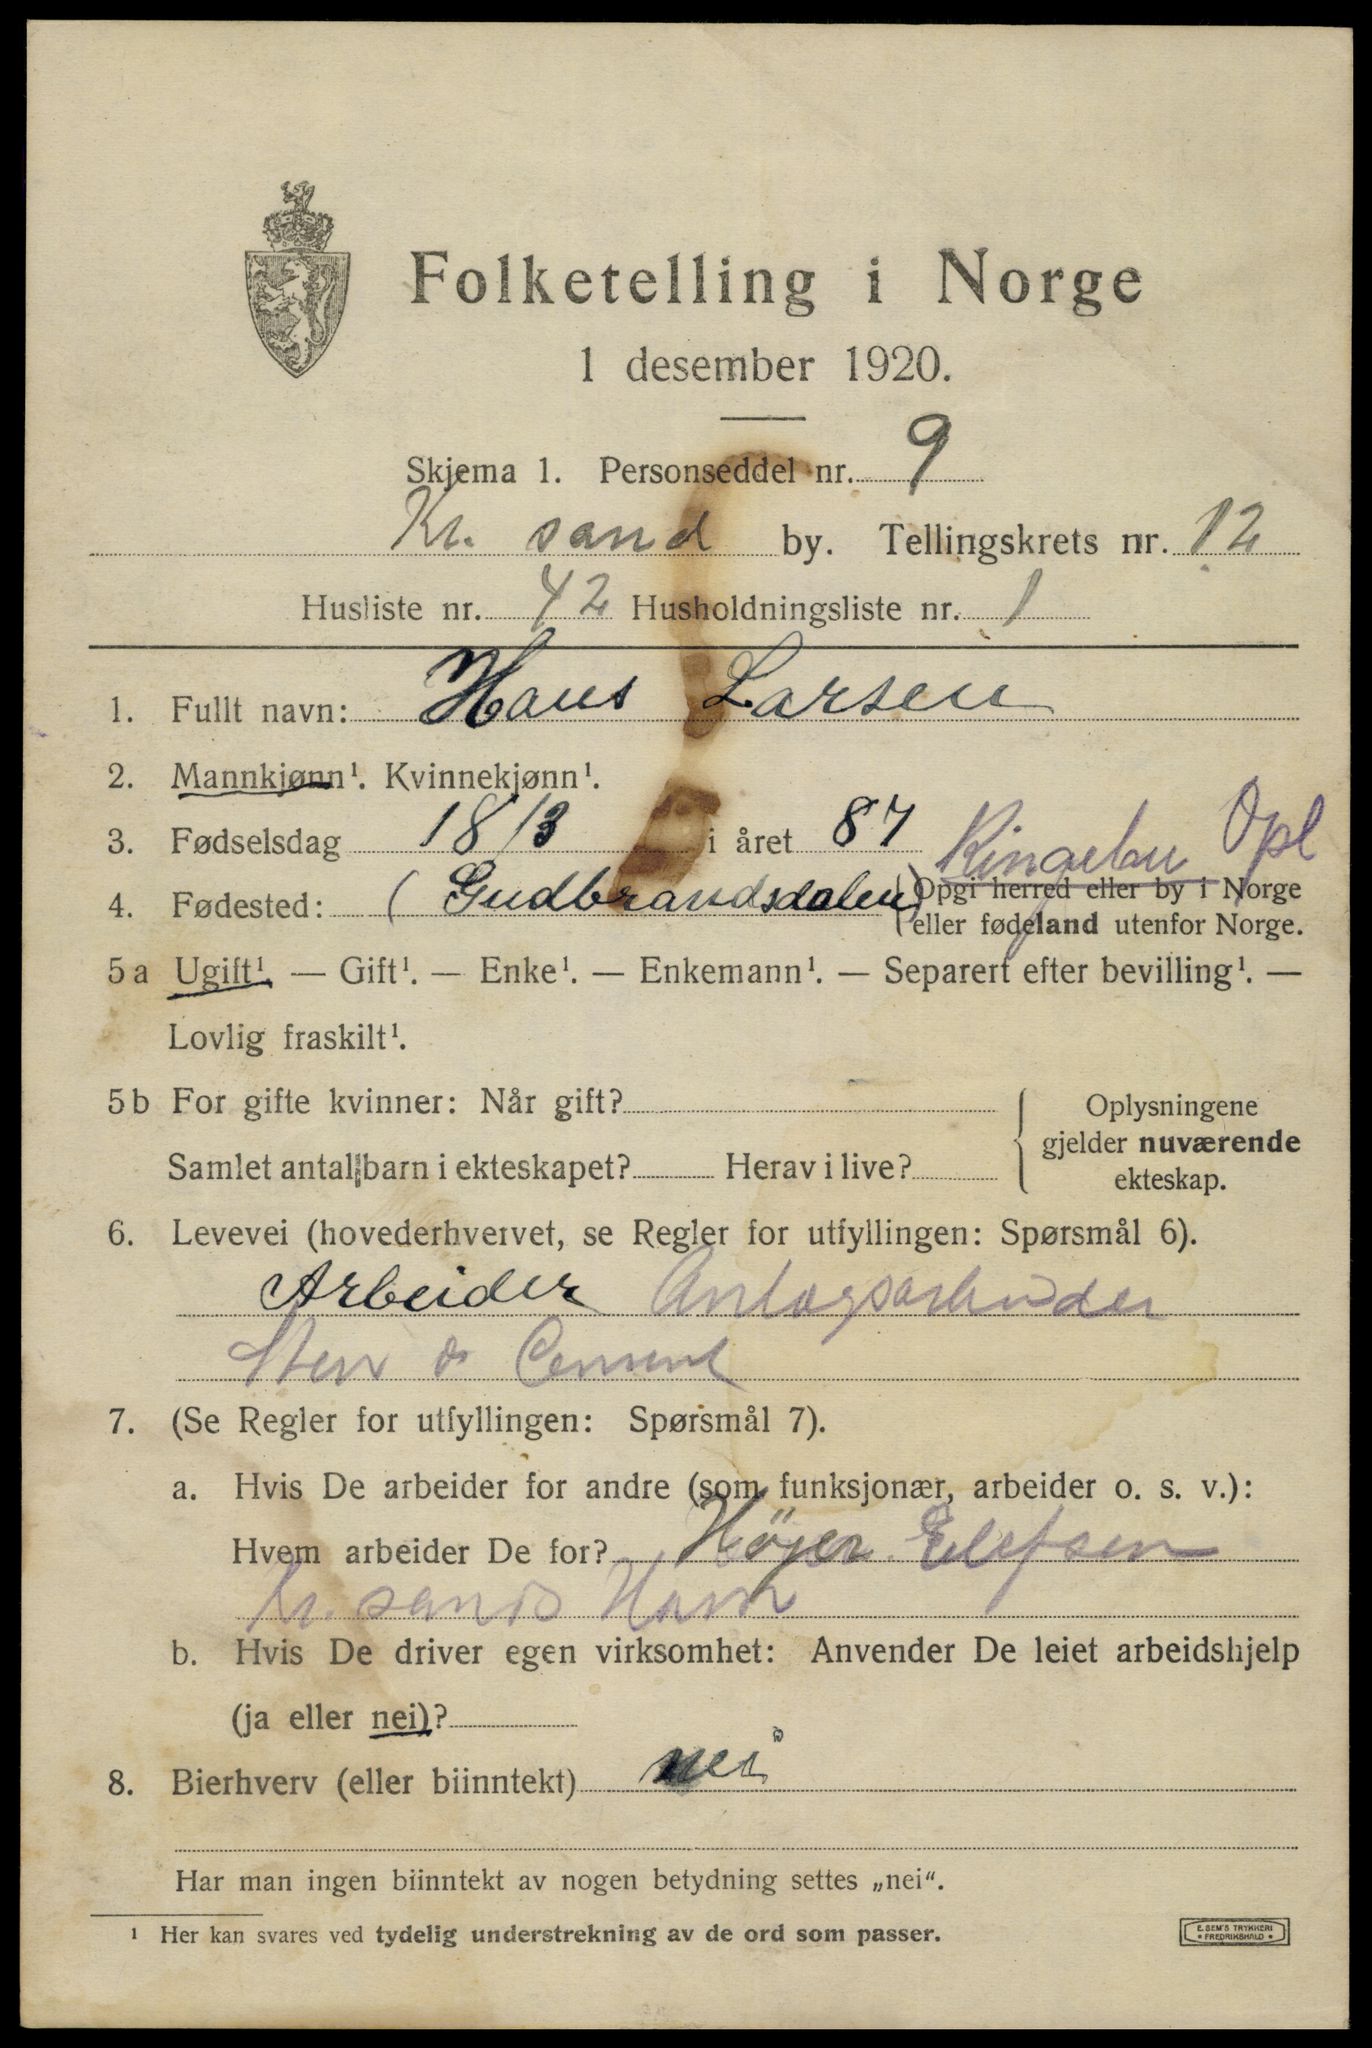 Folketelling i Norge
1 desember 1920.
Skjema 1. Personseddel nr. 9
Kr. sand by. Tellingskrets nr. 12
Husliste nr. 42 Husholdningsliste nr. 1
1. Fullt navn: Hans Larsen
2. Mannkjønn¹. Kvinnekjønn¹.
3. Fødselsdag 18/3 i året 87 Ringebu Opl
4. Fødested: (Gudbrandsdalen) (Opgi herred eller by i Norge
eller fødeland utenfor Norge.
5a Ugift¹. — Gift¹. — Enke¹. — Enkemann¹. — Separert efter bevilling¹. —
Lovlig fraskilt¹.
5b For gifte kvinner: Når gift?
Samlet antal barn i ekteskapet? Herav i live?
Oplysningene
gjelder nuværende
ekteskap.
6. Levevei (hovederhvervet, se Regler for utfyllingen: Spørsmål 6).
Arbeider Anlægsarbeider
Sten & Cement
7. (Se Regler for utfyllingen: Spørsmål 7).
a. Hvis De arbeider for andre (som funksjonær, arbeider o. s. v.):
Hvem arbeider De for? Höyer Elefsen
Kr.sands Havn
b. Hvis De driver egen virksomhet: Anvender De leiet arbeidshjelp
(ja eller nei)?
8. Bierhverv (eller biinntekt) nei
Har man ingen biinntekt av nogen betydning settes „nei“.
¹ Her kan svares ved tydelig understrekning av de ord som passer.
E. SEM'S TRYKKERI
FREDRIKSHALD